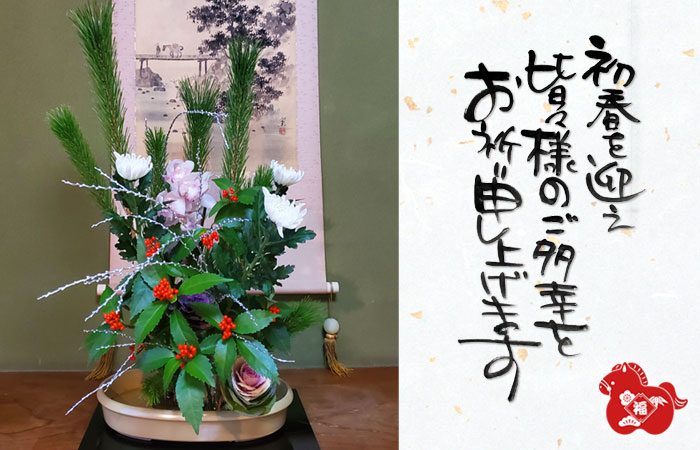 初春を迎え
皆々様のご多幸を
お祈り申し上げます
福